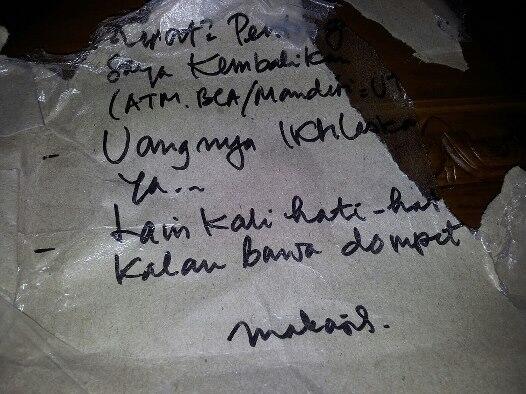 Saya Kembalikan
(ATM. BCA/Mandiri
- Uangnya Ikhlaska
Ya...
- Lain Kali hati-hat
Kalau bawa dompet
makasi.